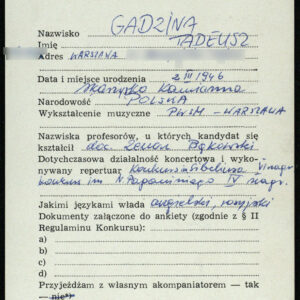 Nazwisko GADZINA
Imię TADEUSZ
Adres WARSZAWA
Data i miejsce urodzenia 2 III 1946
Skarżysko Kamienna
Narodowość POLSKA
Wykształcenie muzyczne PWSM - WARSZAWA
Nazwiska profesorów, u których kandydat się
kształcił doc. Zenon Bąkowski
Dotychczasowa działalność koncertowa i wyko-
nywany repertuar Konkurs im Sibeliusa
konkurs im N. Paganiniego IV nagr.
Jakimi językami włada angielski, rosyjski
Dokumenty załączone do ankiety (zgodnie z § II
Regulaminu Konkursu):
a)
b)
c)
d)
Przyjeżdżam z własnym akompaniatorem — tak
— nie